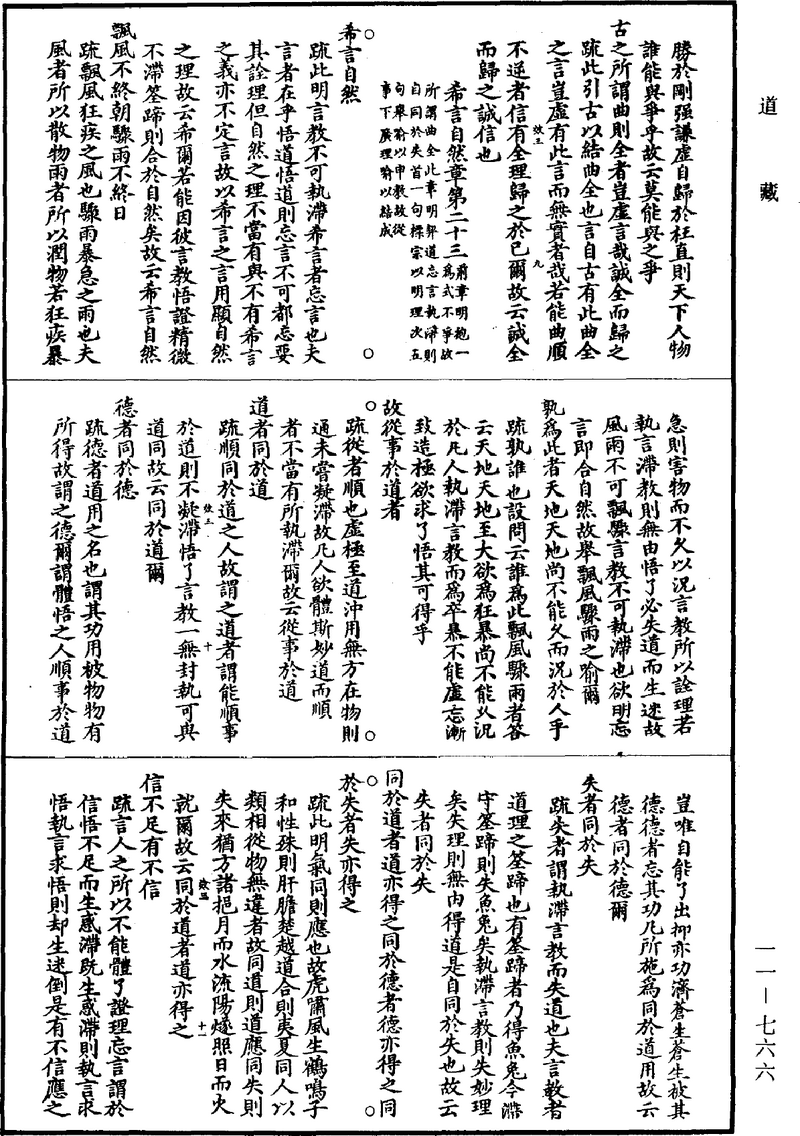 道藏
勝於剛强謙虛自歸於枉直則天下人物
誰能與爭乎故云莫能與之爭
古之所謂曲則全者豈虛言哉誠全而歸之
疏此引古以結曲全也言自古有此曲全
之言豈虛有此言而無實者哉若能曲順
不逆者信有全理歸之於已爾故云誠全
而歸之誠信也
希言自然章第二十三
前章明抱一爲式不爭故
所謂曲全此章明契道忘言執滯則
自同於失首一句標宗以明理次五
句舉喻以申教故從
事下廣理喻以結成
希言自然
疏此明言教不可執滯希言者忘言也夫
言者在乎悟道悟道則忘言不可都忘要
其詮理但自然之理不當有與不有希言
之義亦不定言故以希言之言用顯自然
之理故云希爾若能因彼言教悟證精微
不滯筌蹄則合於自然矣故云希言自然
飄風不終朝驟雨不終日
疏飄風狂疾之風也驟雨暴急之雨也夫
風者所以散物雨者所以潤物若狂疾暴
急則害物而不久以況言教所以詮理若
執言滯教則無由悟了必失道而生迷故
風雨不可飄驟言教不可執滯也欲明忘
言即合自然故舉飄風驟雨之喻爾
孰爲此者天地天地尚不能久而況於人乎
疏孰誰也設問云誰爲此飄風驟雨者答
云天地天地至大欲爲狂暴尚不能久況
於凡人執滯言教而爲卒暴不能虛忘漸
致造極欲求了悟其可得乎
故從事於道者
疏從者順也虛極至道沖用無方在物則
通未嘗凝滯故凡人欲體斯妙道而順
者不當有所執滯爾故云從事於道
道者同於道
疏順同於道之人故謂之道者謂能順事
於道則不凝滯悟了言教一無封執可與
道同故云同於道爾
德者同於德
疏德者道用之名也謂其功用被物物有
所得故謂之德爾謂體悟之人順事於道
豈唯自能了出抑亦功濟蒼生蒼生被其
德德者忘其功凡所施爲同於道用故云
德者同於德爾
失者同於失
疏失者謂執滯言教而失道也夫言教者
道理之筌蹄也有筌蹄者乃得魚兔今滯
守筌蹄則失魚兔矣執滯言教則失妙理
矣失理則無由得道是自同於失也故云
失者同於失
同於道者道亦得之同於德者德亦得之同
於失者失亦得之
疏此明氣同則應也故虎嘯風生鶴鳴子
和性殊則肝膽楚越道合則夷夏同人以
類相從物無違者故同道則道應同失則
失來猶方諸挹月而水流陽燧照日而火
就爾故云同於道者道亦得之
信不足有不信
疏言人之所以不能體了證理忘言謂於
信悟不足而生惑滯既生惑滯則執言求
悟執言求悟則却生迷倒是有不信應之
一一—七六六